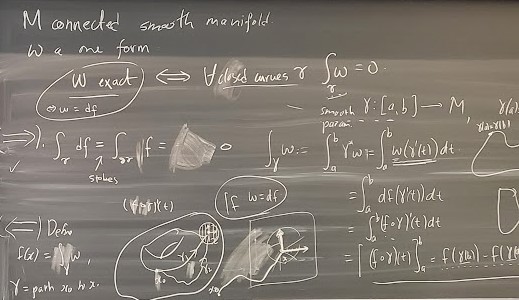 M connected smooth manifold.
ω a one form
ω exact ⟺ ∀ closed curves γ ∫_γ ω = 0.
⟺ ω = df
smooth param. γ: [a,b] → M,
⟹). ∫_γ df = ∫_∂γ f = 0
stokes
∫_γ ω := ∫_a^b γ*ω = ∫_a^b ω(γ'(t)) dt
If ω = df
= ∫_a^b df(γ'(t)) dt
= ∫_a^b (f∘γ)'(t) dt
= [(f∘γ)(t)]_a^b = f(γ(b)) - f(γ
⟸) Define
f(x) = ∫_γ ω,
γ = path x₀ to x.